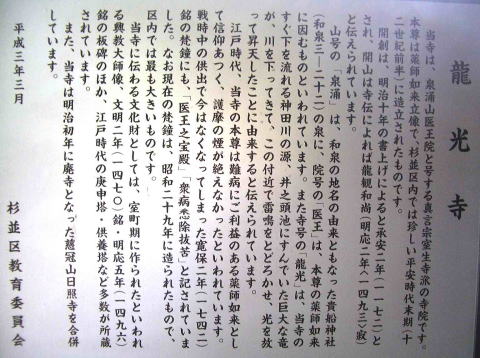 龍光寺
当寺は、泉涌山医王院と号する真言宗室生寺派の寺院です。
本尊は薬師如来立像で、杉並区内では珍しい平安時代末期（十
二世紀前半）に造立されたものです。
開創は、明治十年の書上げによると承安二年（一一七二）と
され、開山は寺伝によれば龍観和尚（明応二年〈一四九三〉寂）
と伝えられています。
山号の「泉涌」は、和泉の地名の由来ともなった貴船神社
（和泉三―二十二）の泉に、院号の「医王」は、本尊の薬師如来
に因むものといわれています。また寺号の「龍光」は、当寺の
すぐ下を流れる神田川の源、井之頭池にすんでいた巨大な竜
が、川を下ってきて、この付近で雷鳴をとどろかせ、光を放
って昇天したことに由来すると伝えられています。
江戸時代、当寺の本尊は難病にご利益のある薬師如来とし
て信仰あつく、護摩の煙が絶えなかったといわれています。
戦時中の供出で今はなくなってしまった寛保二年（一七四二）
銘の梵鐘にも、「医王之宝殿」「衆病悉除抜苦」と記されていま
した。なお現在の梵鐘は、昭和二十九年に造られたもので、
区内では最も大きいものです。
当寺に伝わる文化財としては、室町期に作られたといわれ
る興教大師像、文明二年（一四七〇）銘・明応五年（一四九六）
銘の板碑のほか、江戸時代の庚申塔・供養塔など多数が所蔵
されています。
また、当寺は明治初年に廃寺となった慈冠山日照寺を合併
しています。
平成三年三月
杉並区教育委員会